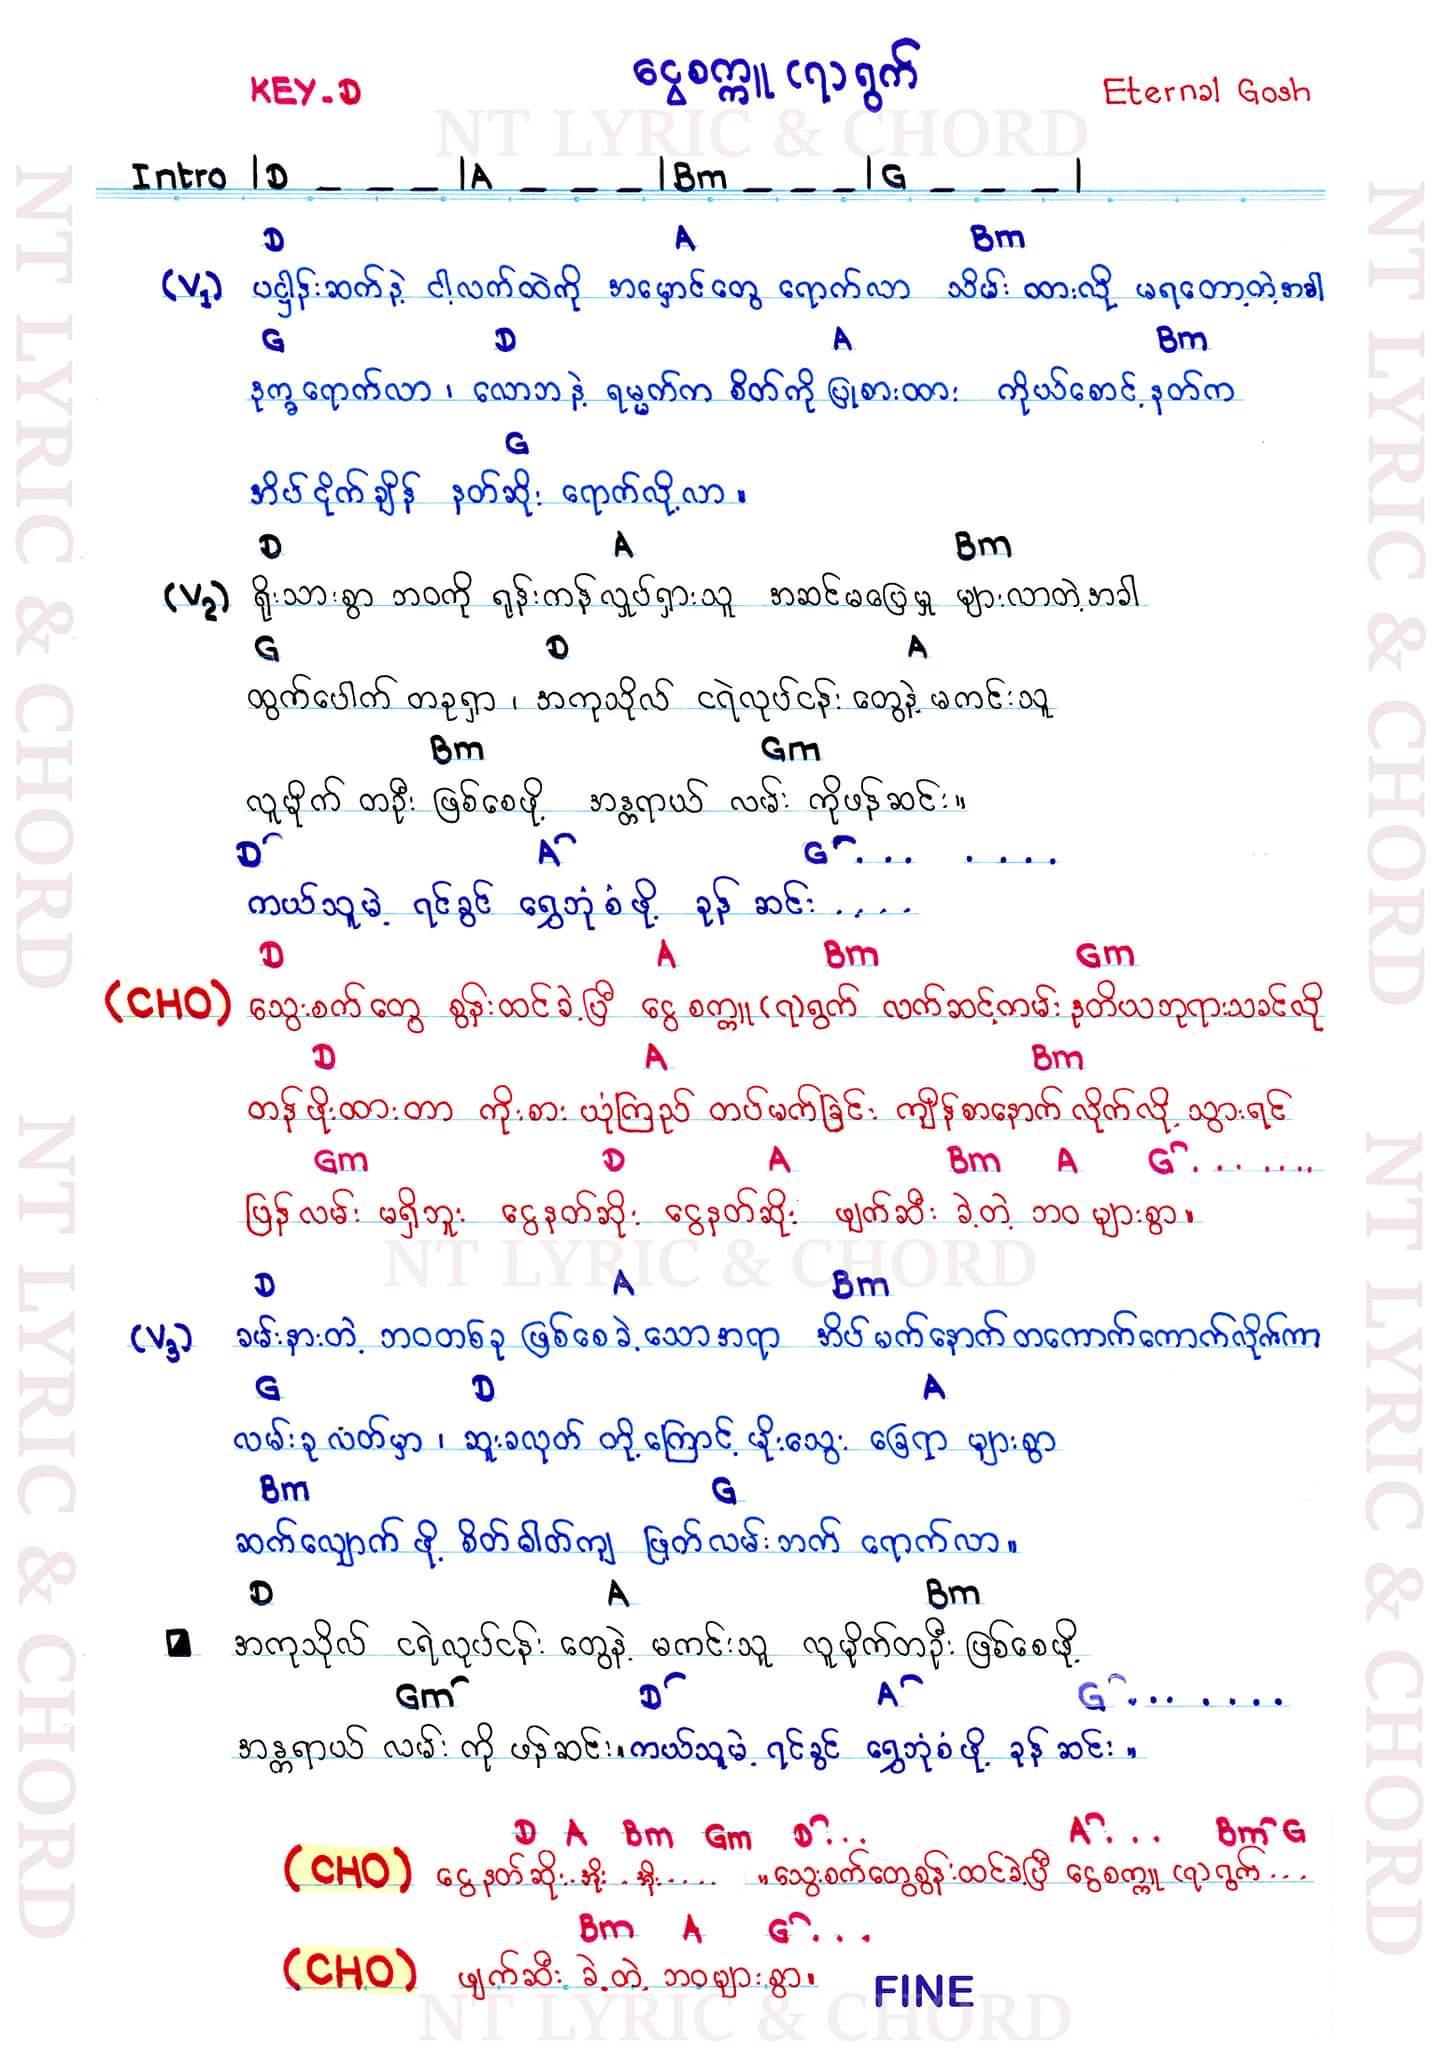 KEY-D
ငွေစက္ကူ (၇) ရွက်
Eternal Gosh
NT LYRIC & CHORD
Intro |D _ _ _ |A _ _ _ |Bm _ _ _ |G _ _ _ |
D A Bm
(V1) ပဋ္ဌာန်းဆက်နဲ့ ငါ့လက်ထဲကို အမှောင်တွေ ရောက်လာ သိမ်းထားလို့ မရတော့တဲ့အခါ
G D A Bm
ဒုက္ခရောက်လာ ၊ လောဘနဲ့ ရမ္မက်က စိတ်ကိုပြုစားထား ကိုယ်စောင့်နတ်က
G
အိပ်ငိုက်ချိန် နတ်ဆိုး ရောက်လို့လာ ။
D A Bm
(V2) ရိုးသားစွာ ဘဝကို ရုန်းကန်လှုပ်ရှားသူ အဆင်မပြေမှု များလာတဲ့အခါ
G D A
ထွက်ပေါက် တခုရှာ ၊ အကုသိုလ် ငရဲလုပ်ငန်း တွေနဲ့ မကင်းသူ
Bm Gm
လူမိုက် တဦး ဖြစ်စေဖို့ အန္တရာယ် လမ်း ကိုဖန်ဆင်း ။
D A G ... ....
ကယ်သူမဲ့ ရင်ခွင် ရွှေဘုံစံဖို့ ခုန် ဆင်း ....
D A Bm Gm
(CHO) သွေးစက်တွေ စွန်းထင်ခဲ့ပြီ ငွေစက္ကူ (၇) ရွက် လက်ဆင့်ကမ်း ဒုတိယဘုရားသခင်လို
D A Bm
တန်ဖိုးထားတာ ကိုးစား ယုံကြည် တပ်မက်ခြင်း ကျိန်စာနောက် လိုက်လို့ သွားရင်
Gm D A Bm A G ... ....
ပြန်လမ်း မရှိဘူး ငွေနတ်ဆိုး ငွေနတ်ဆိုး ဖျက်ဆီး ခဲ့တဲ့ ဘဝ များစွာ ။
NT LYRIC & CHORD
D A Bm
(V3) ခမ်းနားတဲ့ ဘဝတစ်ခု ဖြစ်စေခဲ့သောအရာ အိပ်မက်နောက် တကောက်ကောက်လိုက်ကာ
G D A
လမ်းခုလတ်မှာ ၊ ဆူးခလုတ် တို့ကြောင့် မိုးသွေး ခြေရာ များစွာ
Bm G
ဆက်လျှောက်ဖို့ စိတ်ဓါတ်ကျ ဖြတ်လမ်းဘက် ရောက်လာ ။
D A Bm
အကုသိုလ် ငရဲလုပ်ငန်း တွေနဲ့ မကင်းသူ လူမိုက်တဦး ဖြစ်စေဖို့
Gm D A G ... ....
အန္တရာယ် လမ်း ကို ဖန်ဆင်း ။ ကယ်သူမဲ့ ရင်ခွင် ရွှေဘုံစံဖို့ ခုန် ဆင်း ။
D A Bm Gm D ... A ... Bm G
(CHO) ငွေနတ်ဆိုး..အိုး..အိုး.... ။ သွေးစက်တွေစွန်းထင်ခဲ့ပြီ ငွေစက္ကူ (၇) ရွက် ...
Bm A G ...
(CHO) ဖျက်ဆီး ခဲ့တဲ့ ဘဝများစွာ ။
FINE
NT LYRIC & CHORD
NT LYRIC & CHORD
NT LYRIC & CHORD
NT LYRIC & CHORD
NT LYRIC & CHORD